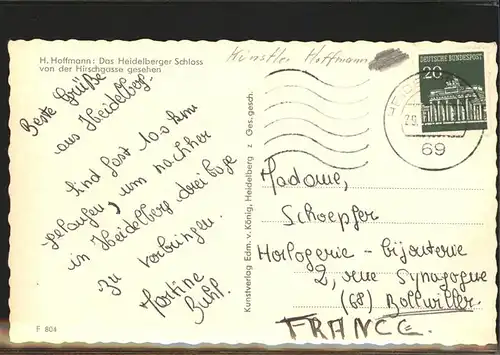 H. Hoffmann: Das Heidelberger Schloss
von der Hirschgasse gesehen
Künstler Hoffmann
Beste Grüße
aus Heidelberg!
Sind fast 100 km
gelaufen, um nachher
in Heidelberg drei Tage
zu verbringen.
Martine
Buhl.
F 804
Kunstverlag Edm. v. König, Heidelberg z Ges. gesch.
DEUTSCHE BUNDESPOST
20
69
Madame,
Schoepfer
Horlogerie - bijouterie
2, rue Synagogue
(68) Bollwiller.
FRANCE.